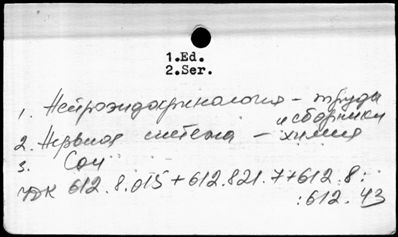 1.Ed.
2.Ser.
1. Нейроэндокринология - труды
и сборники
2. Нервная система - химия
3. Сон
УДК 612.8.015+612.821.7+612.8:
:612.43